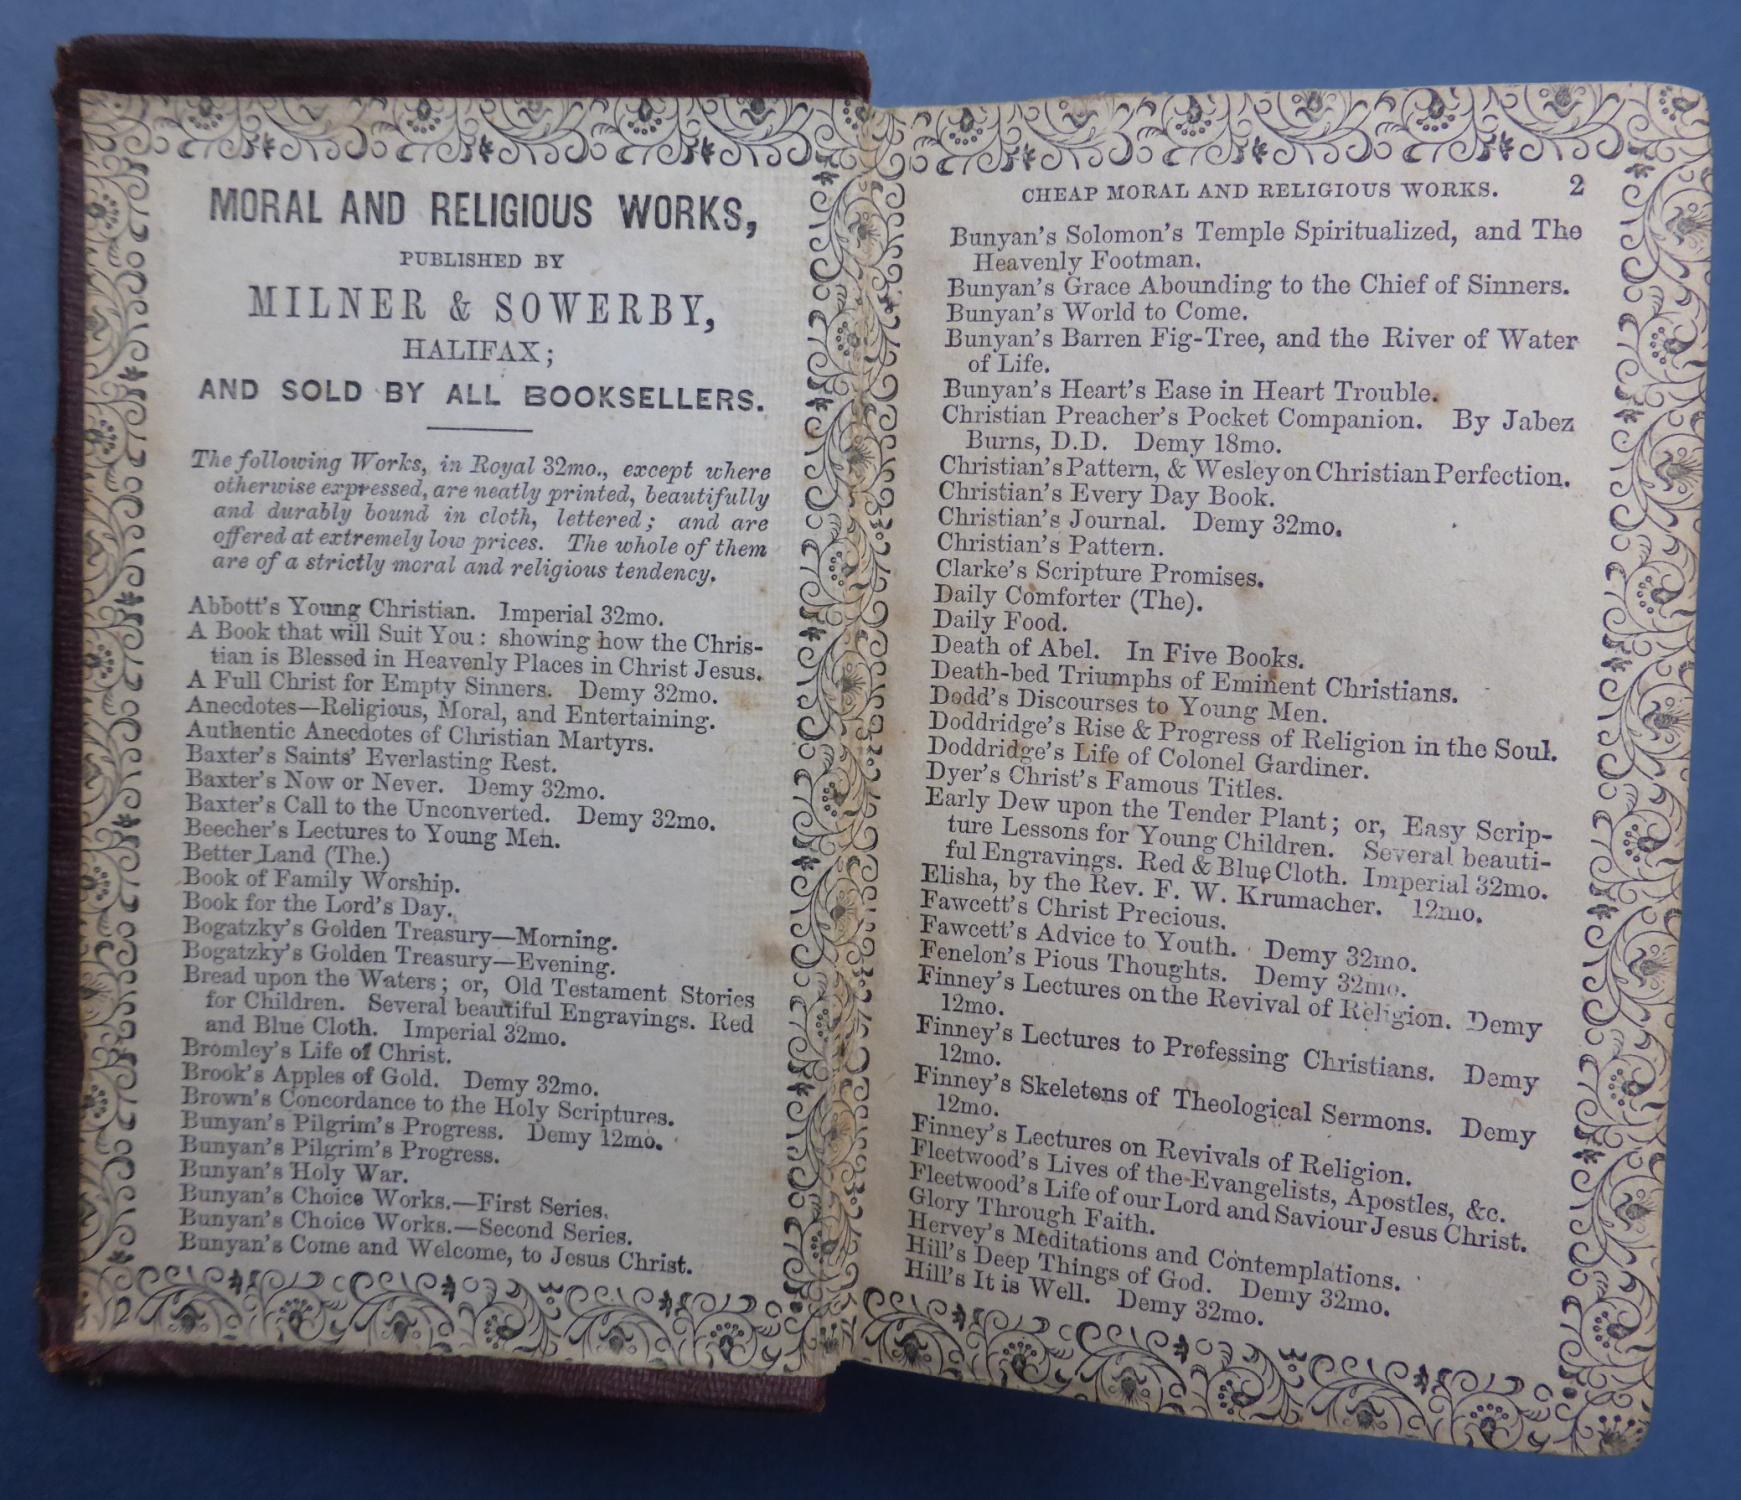 MORAL AND RELIGIOUS WORKS,
PUBLISHED BY
MILNER & SOWERBY,
HALIFAX;
AND SOLD BY ALL BOOKSELLERS.
The following Works, in Royal 32mo., except where
otherwise expressed, are neatly printed, beautifully
and durably bound in cloth, lettered; and are
offered at extremely low prices. The whole of them
are of a strictly moral and religious tendency.
Abbott's Young Christian. Imperial 32mo.
A Book that will Suit You: showing how the Chris-
tian is Blessed in Heavenly Places in Christ Jesus.
A Full Christ for Empty Sinners. Demy 32mo.
Anecdotes—Religious, Moral, and Entertaining.
Authentic Anecdotes of Christian Martyrs.
Baxter's Saints' Everlasting Rest.
Baxter's Now or Never. Demy 32mo.
Baxter's Call to the Unconverted. Demy 32mo.
Beecher's Lectures to Young Men.
Better Land (The.)
Book of Family Worship.
Book for the Lord's Day.
Bogatzky's Golden Treasury—Morning.
Bogatzky's Golden Treasury—Evening.
Bread upon the Waters; or, Old Testament Stories
for Children. Several beautiful Engravings. Red
and Blue Cloth. Imperial 32mo.
Bromley's Life of Christ.
Brook's Apples of Gold. Demy 32mo.
Brown's Concordance to the Holy Scriptures.
Bunyan's Pilgrim's Progress. Demy 12mo.
Bunyan's Pilgrim's Progress.
Bunyan's Holy War.
Bunyan's Choice Works.—First Series.
Bunyan's Choice Works.—Second Series.
Bunyan's Come and Welcome, to Jesus Christ.
CHEAP MORAL AND RELIGIOUS WORKS. 2
Bunyan's Solomon's Temple Spiritualized, and The
Heavenly Footman.
Bunyan's Grace Abounding to the Chief of Sinners.
Bunyan's World to Come.
Bunyan's Barren Fig-Tree, and the River of Water
of Life.
Bunyan's Heart's Ease in Heart Trouble.
Christian Preacher's Pocket Companion. By Jabez
Burns, D.D. Demy 18mo.
Christian's Pattern, & Wesley on Christian Perfection.
Christian's Every Day Book.
Christian's Journal. Demy 32mo.
Christian's Pattern.
Clarke's Scripture Promises.
Daily Comforter (The).
Daily Food.
Death of Abel. In Five Books.
Death-bed Triumphs of Eminent Christians.
Dodd's Discourses to Young Men.
Doddridge's Rise & Progress of Religion in the Soul.
Doddridge's Life of Colonel Gardiner.
Dyer's Christ's Famous Titles.
Early Dew upon the Tender Plant; or, Easy Scrip-
ture Lessons for Young Children. Several beauti-
ful Engravings. Red & Blue Cloth. Imperial 32mo.
Elisha, by the Rev. F. W. Krumacher. 12mo.
Fawcett's Christ Precious.
Fawcett's Advice to Youth. Demy 32mo.
Fenelon's Pious Thoughts. Demy 32mo.
Finney's Lectures on the Revival of Religion. Demy
12mo.
Finney's Lectures to Professing Christians. Demy
12mo.
Finney's Skeletons of Theological Sermons. Demy
12mo.
Finney's Lectures on Revivals of Religion.
Fleetwood's Lives of the Evangelists, Apostles, &c.
Fleetwood's Life of our Lord and Saviour Jesus Christ.
Glory Through Faith.
Hervey's Meditations and Contemplations.
Hill's Deep Things of God. Demy 32mo.
Hill's It is Well. Demy 32mo.